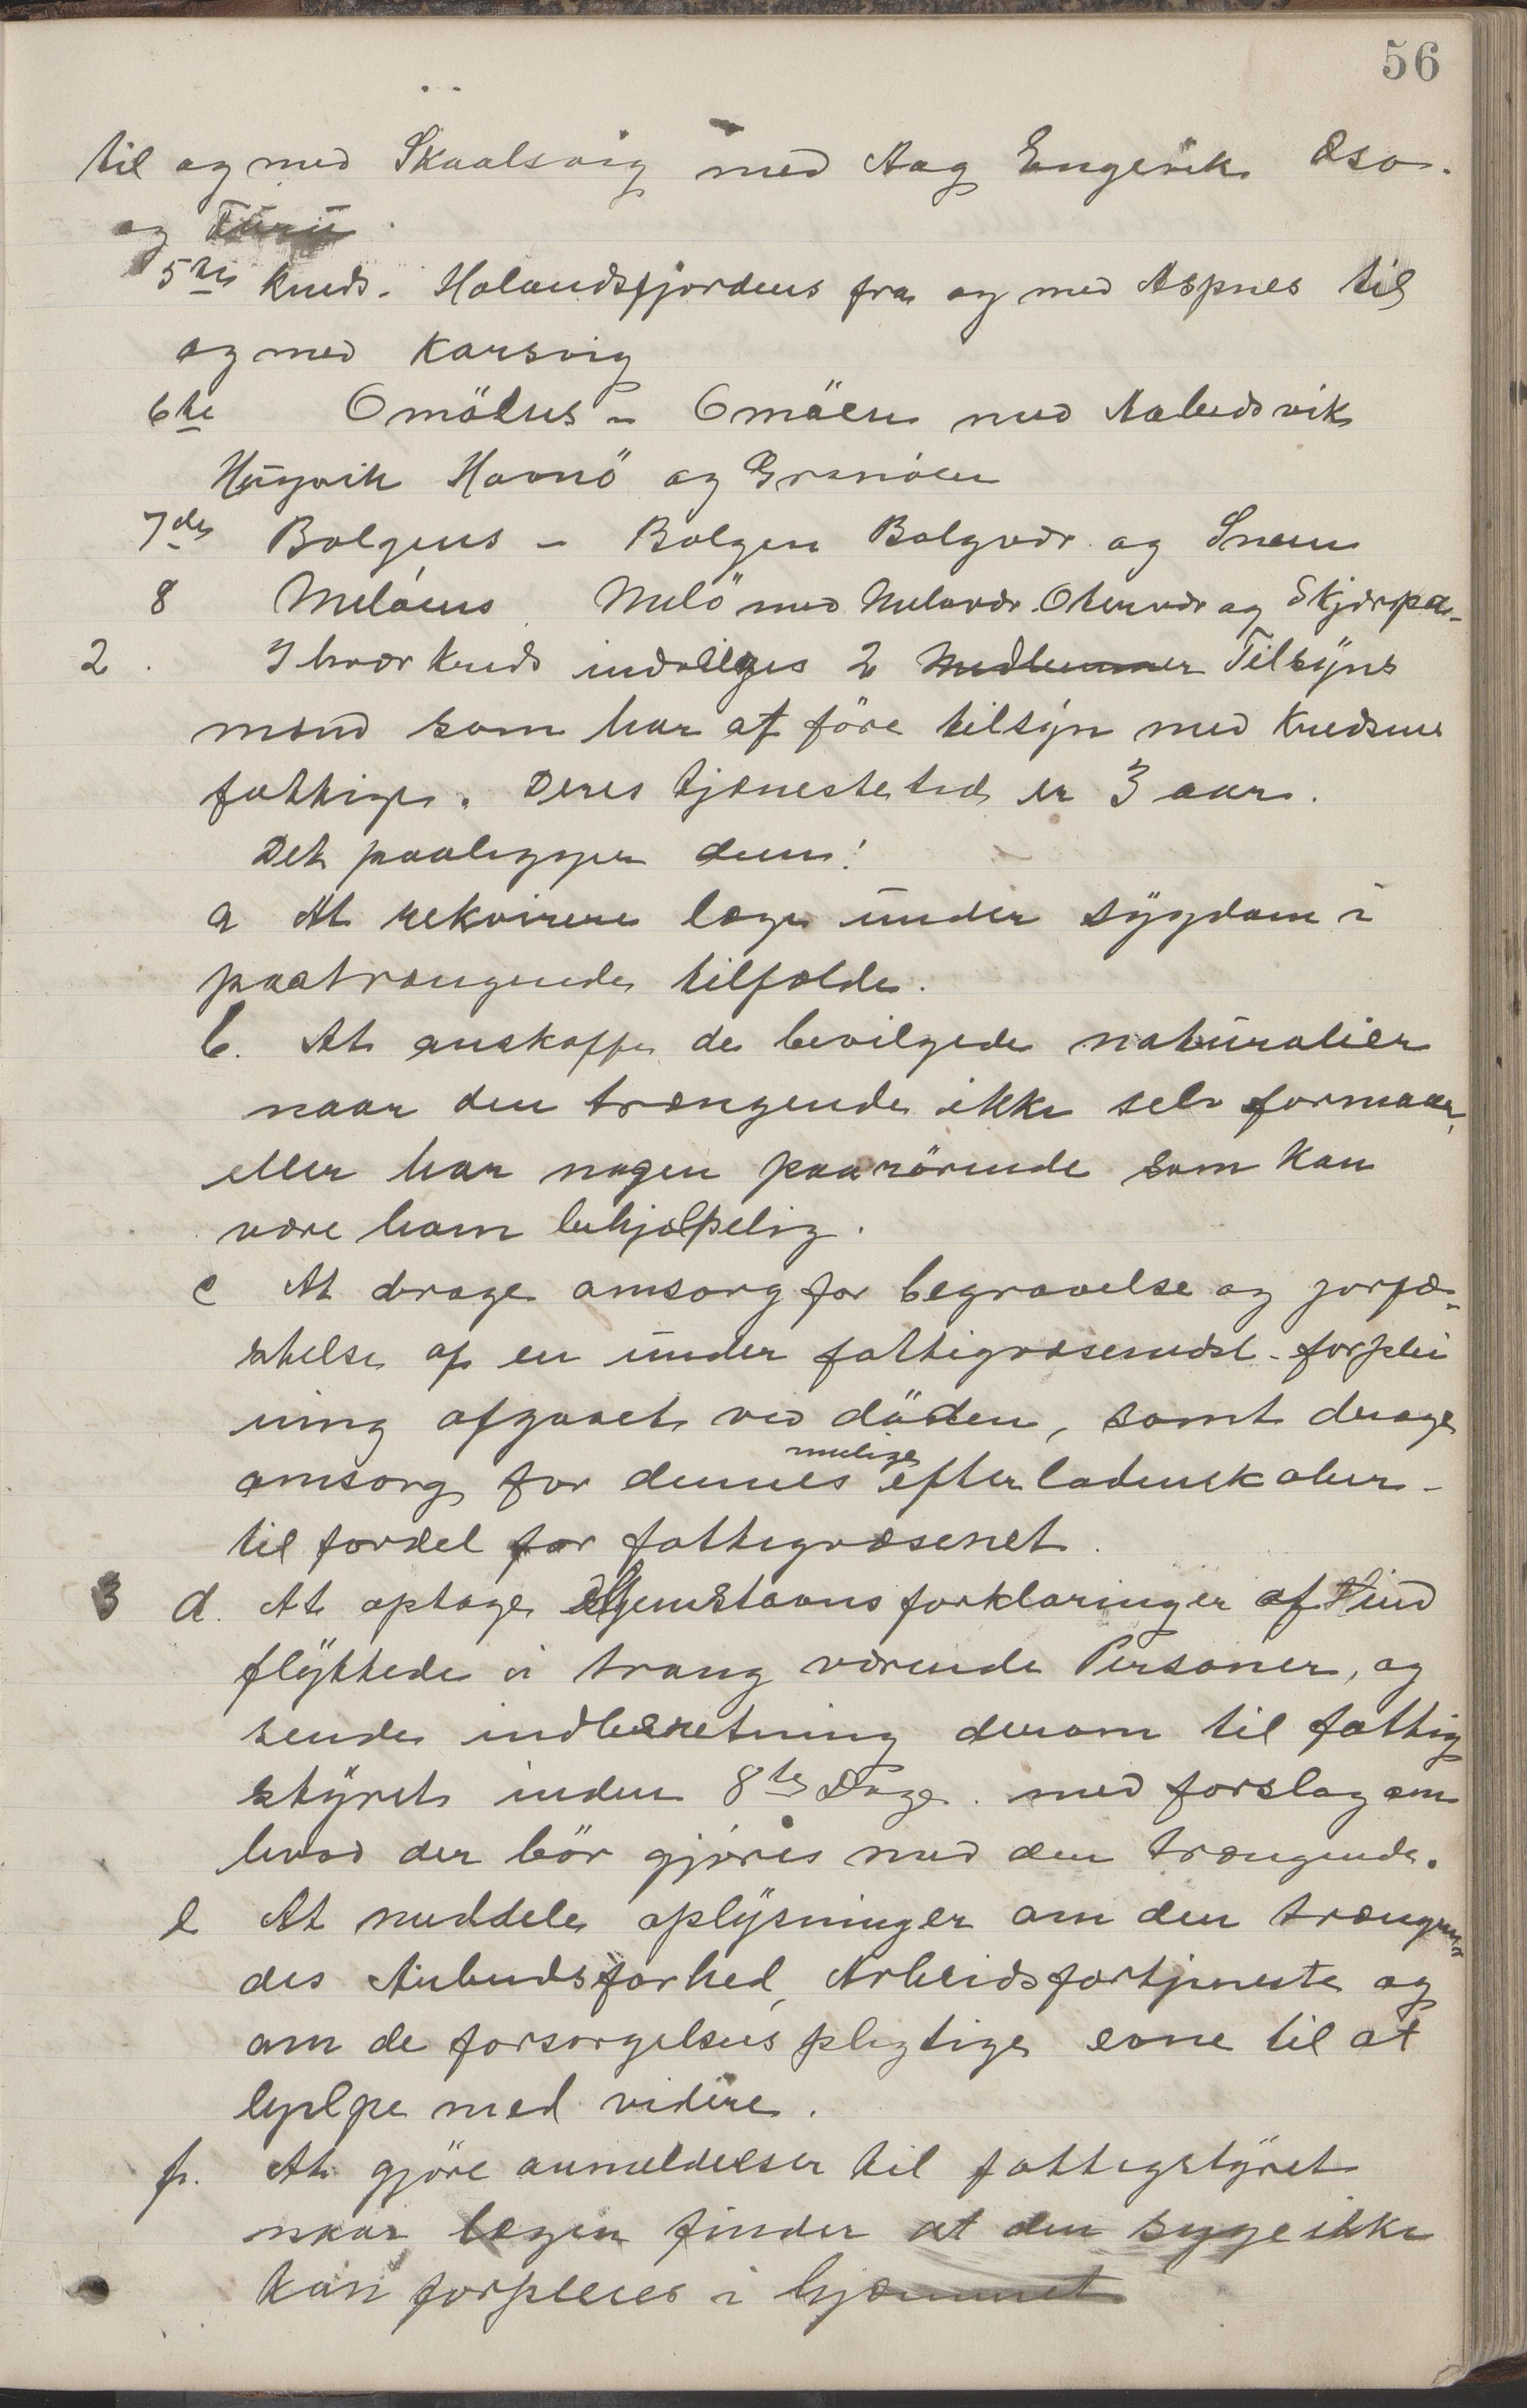 56
til og med Skaalsvig med Aag Engevik Øso.
og Turü
5te kreds. Holandsfjordens fra og med Aspnes til
og med Karsvig
6te Omöens - Omöen med Aabudsvik
Hügvik Havnö og Grønöen
7de Bolgens - Bolgen Bolgvær og Sneen
8 Melöens Melö med Melövær Otervær og Skjærpa-
2. I hver kreds indvælges 2 Medlemmer Tilsÿns
mænd som har at före tilsÿn med Kredsens
fattige. Deres tjenestetid er 3 aar.
Det paaligger dem:
a At rekvirere læge ünder sÿgdom i
paatrængende tilfælde.
b. At anskaffe de bevilgede natüralier
naar den trængende ikke selv formaar,
eller har nogen paarörende som kan
være ham behjælpelig.
c At drage omsorg for begravelse og jorfæ-
stelse af en ünder fattigvæsenets forplei
ning afgaaet ved döden, samt drage
omsorg for dennes mulige efterladenskaber
til fordel for fattigvæsenet.
3 d. At optage Hjemstavnsforklaringer af ind
flÿttede i trang værende Personer, og
sende indberetning derom til fattig
stÿret inden 8te Dage. med forslag om
hvad der bör gjöres med den trængende.
e At meddele oplÿsninger om den trængen-
des Arbeidsforhed, Arbeidsfortjeneste og
om de forsorgelsespligtige evne til at
hjelpe med videre.
f. At gjöre anmeldelser til fattigstÿret
naar lægen finder at den syge ikke
kan forpleies i hjemmet